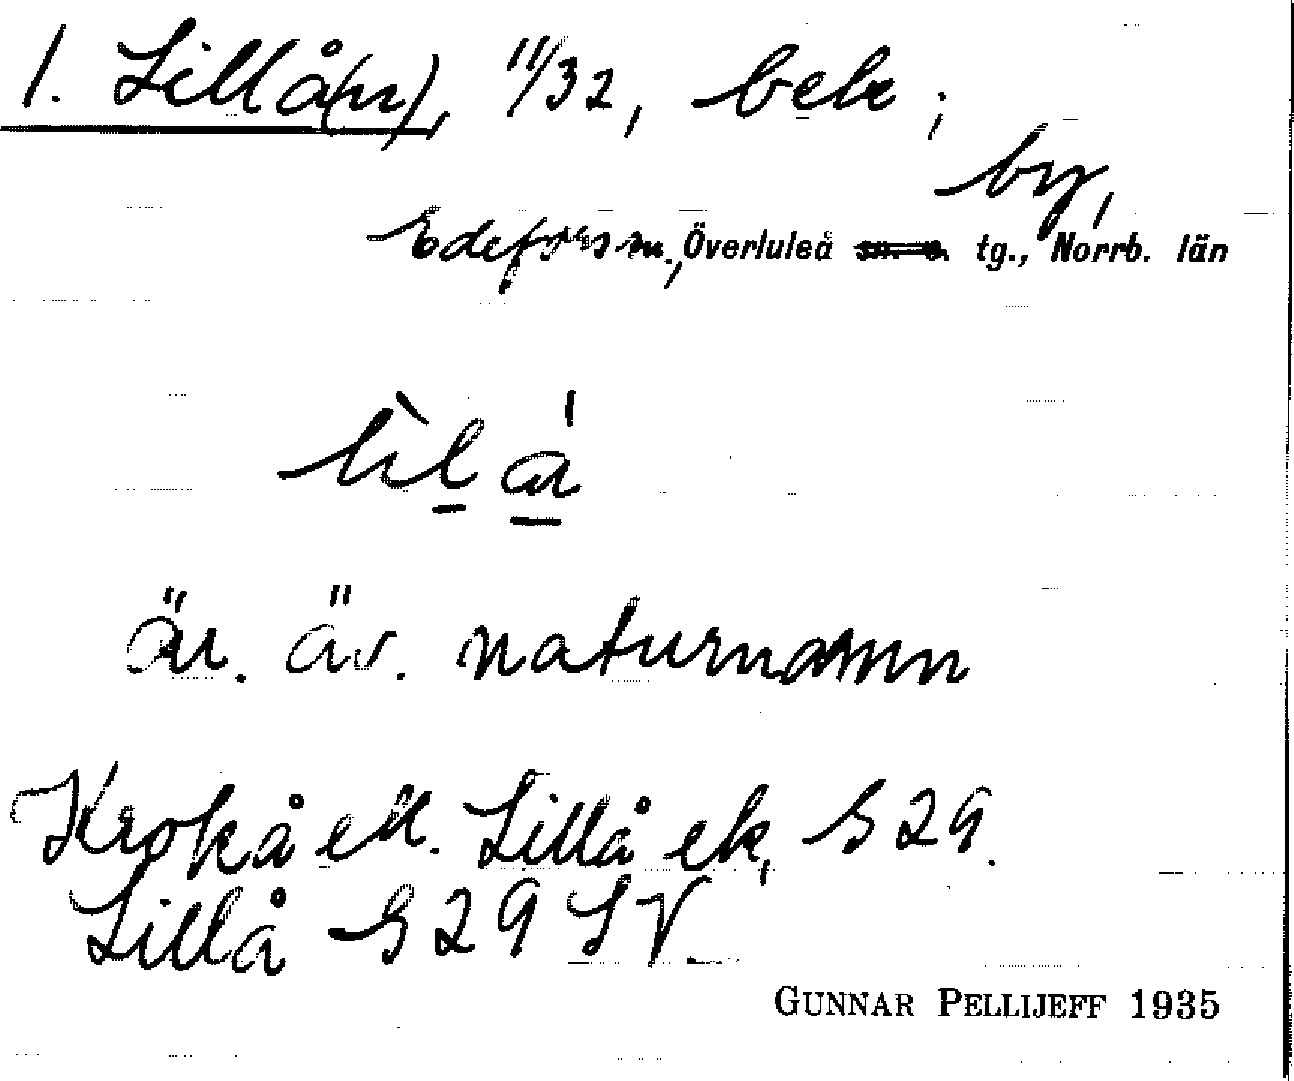 1. Lillå(n), 11/32, beb.;
by,
Edefors sn., Överluleå tg., Norrb. län
är. äv. naturnamn
Krokå ell. Lillå ek, S 29.
Lillå S 29 SV.
GUNNAR PELLIJEFF 1935